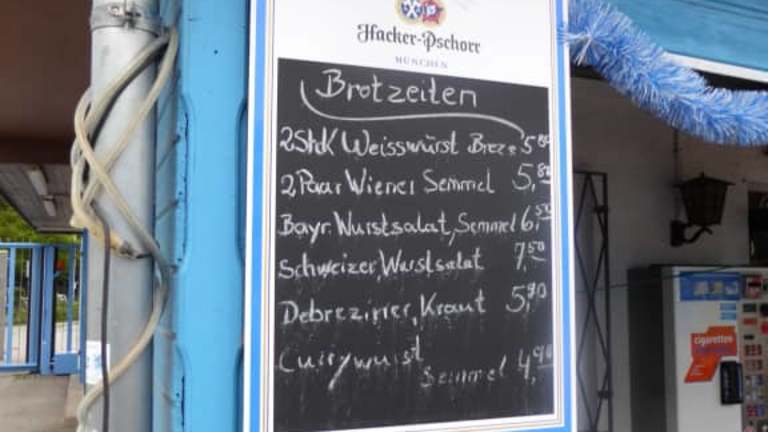 Hacker-Pschorr
MÜNCHEN
Brotzeiten
2Stck Weisswürst Breze 5,80
2 Paar Wiener Semmel 5,80
Bayr. Wurstsalat, Semmel 6,50
Schweizer Wurstsalat 7,50
Debreziner, Kraut 5,90
Currywurst
Semmel 4,90
cigaretten